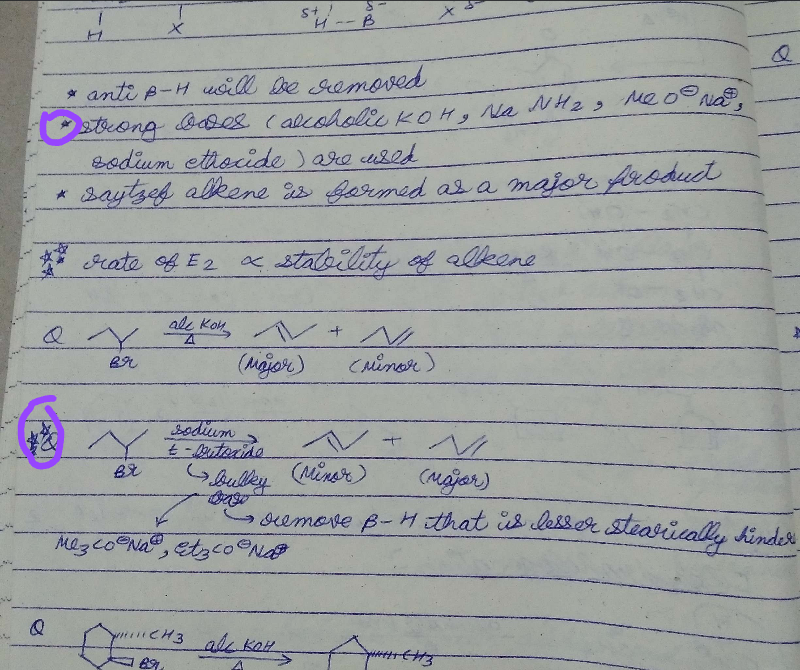 H X δ+ H -- B δ- X δ-
Q
* anti β-H will be removed
* strong bases (alcoholic KOH, Na NH2, MeO⊖ Na⊕,
sodium ethocide) are used
* saytzef alkene is formed as a major product
rate of E2 ∝ stability of alkene
Q Br alc KOH Δ + 
(Major) (Minor)
Q Br sodium t-butoxide +
bulkey base (Minor) (Major)
remove β-H that is lesser stearically hinder
Me3CO⊖Na⊕, Et3CO⊖Na⊕
Q CH3 Br alc KOH Δ CH3